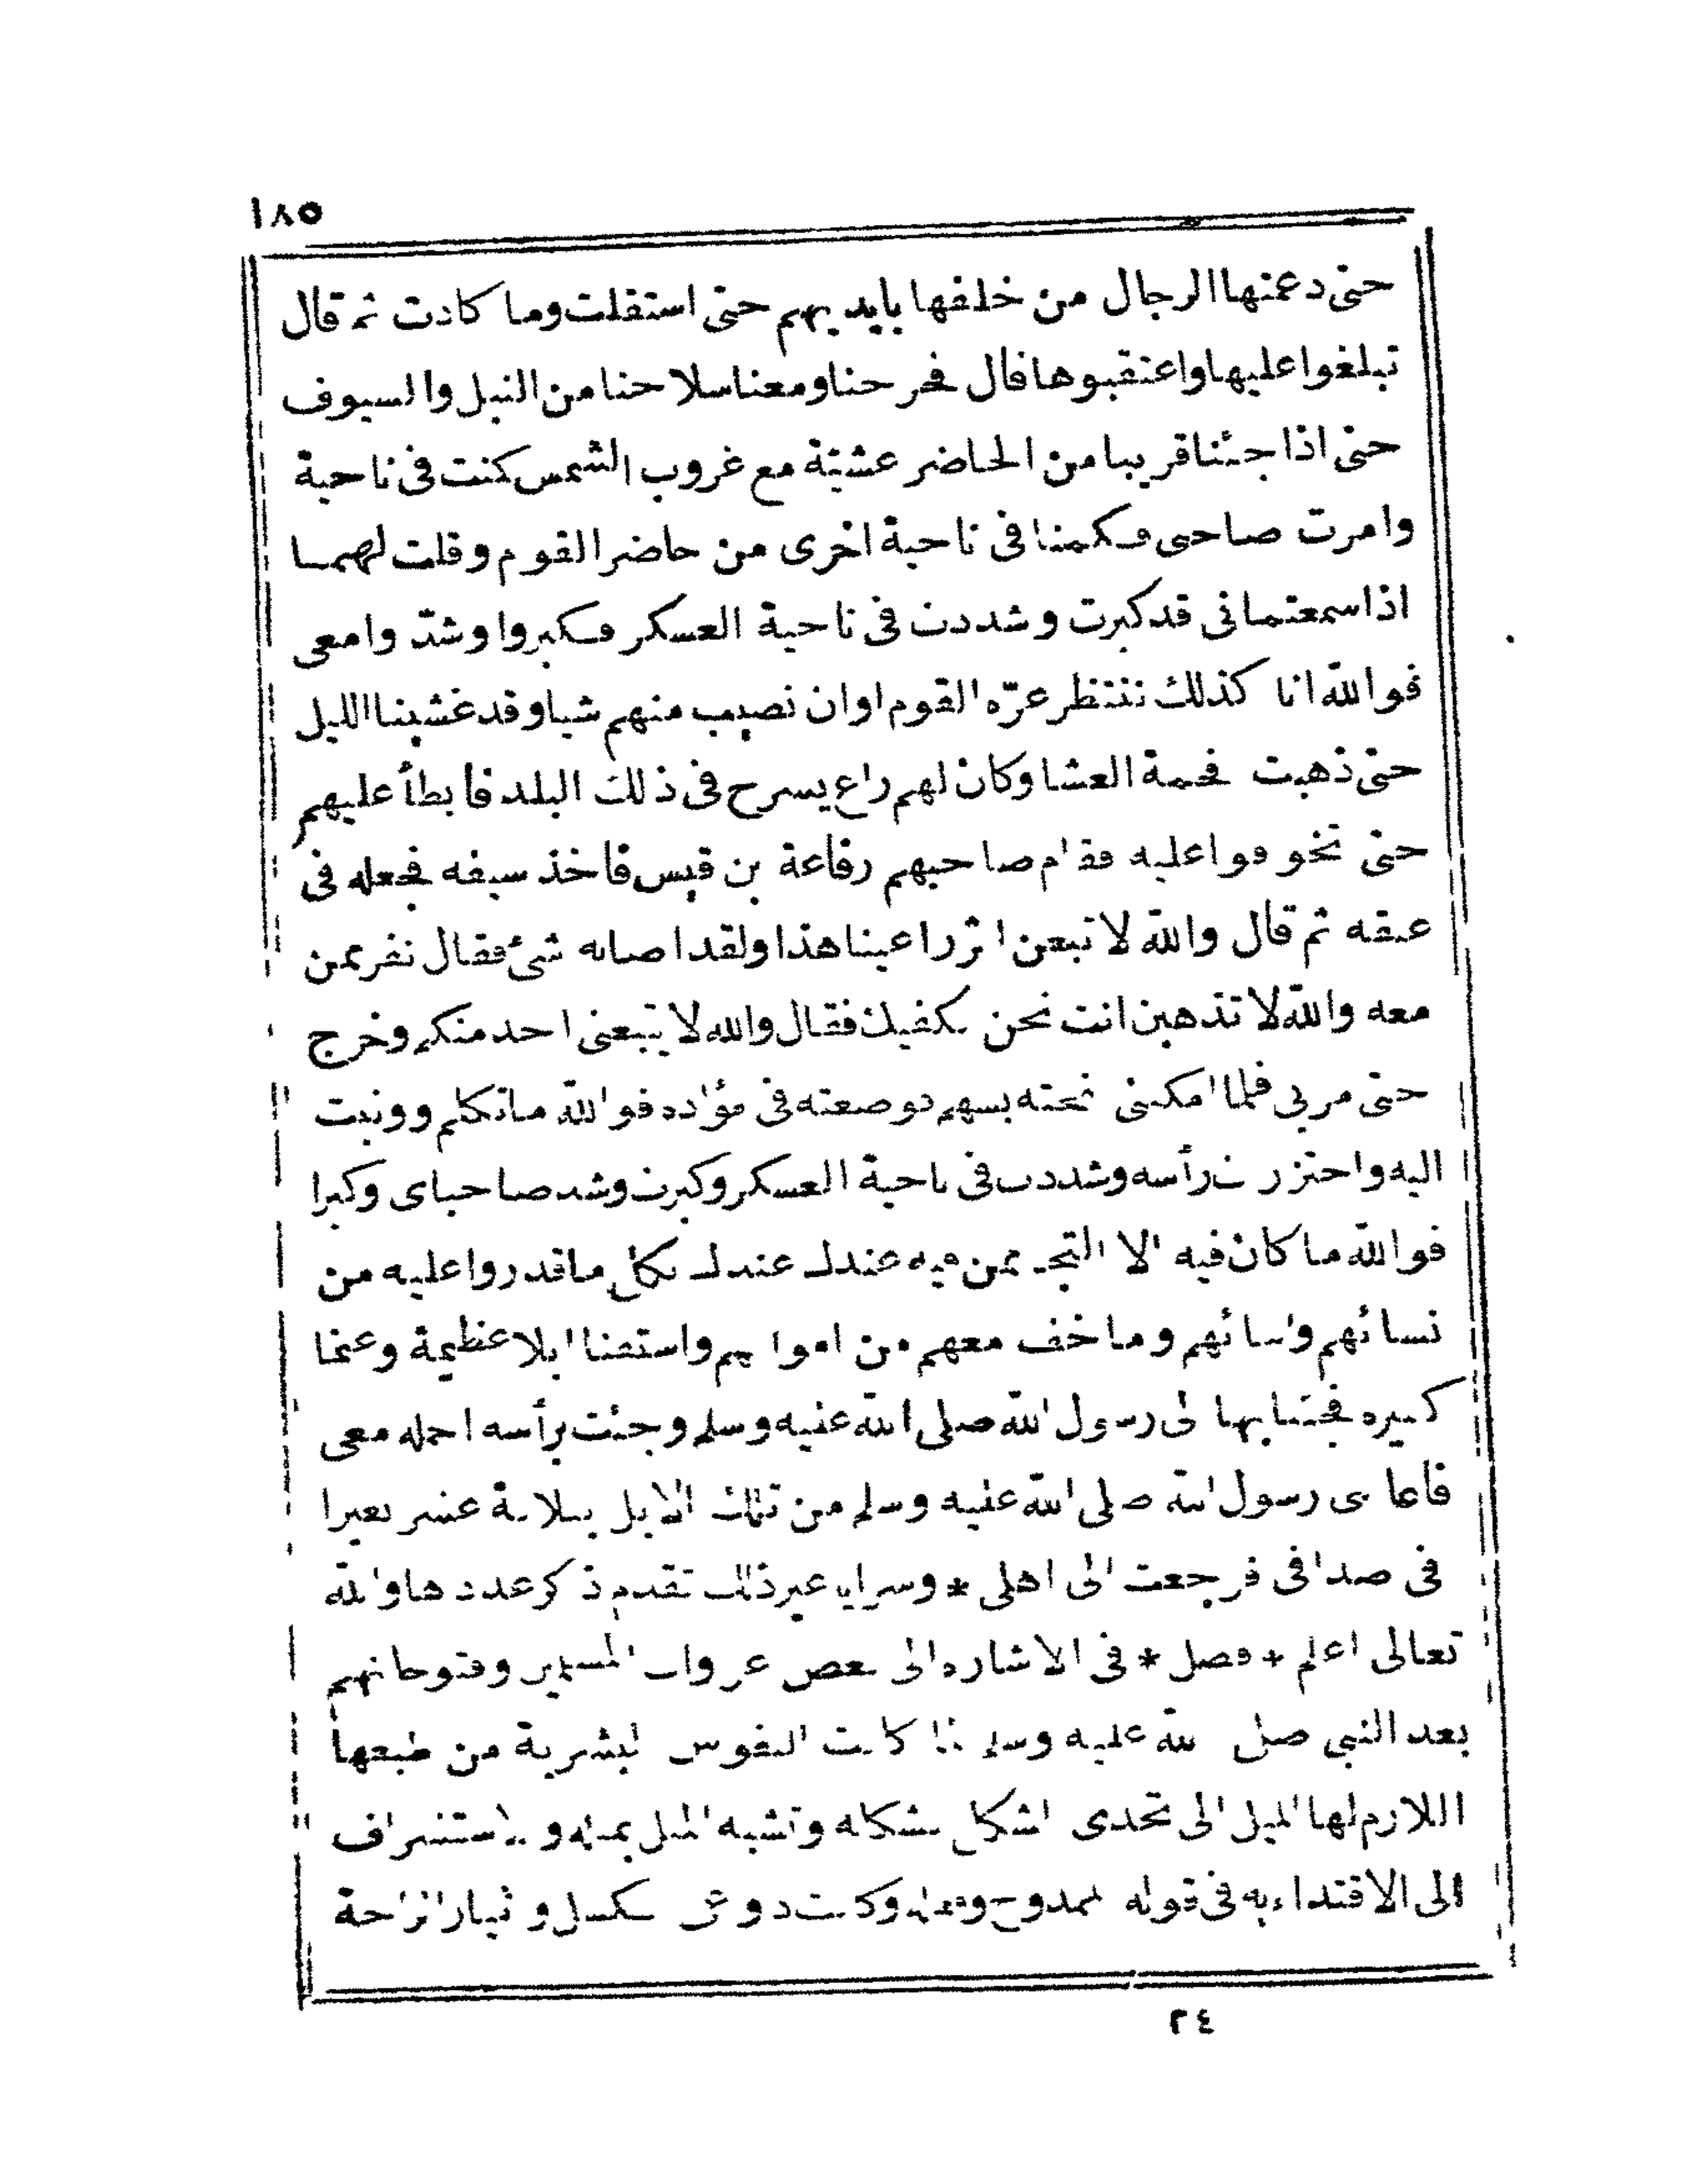 ١٨٥
حتى دعمتها الرجال من خلفها بايديهم حتى استقلت وما كادت ثم قال
تبلغوا عليها واعتقبوها قال فخرحنا ومعنا سلاحنا من النبل والسيوف
حتى اذا جئنا قريبا من الحاضر عشية مع غروب الشمس كنت فى ناحية
وامرت صاحبى فكمنا فى ناحية اخرى من حاضر القوم وقلت لهما
اذا سمعتمانى قد كبرت وشددت فى ناحية العسكر فكبروا وشدّوا معى
فوالله انا كذلك ننتظر غرّه القوم او ان نصيب منهم شيا وقد غشينا الليل
حتى ذهبت فحمة العشا وكان لهم راع يسرح فى ذلك البلد فابطأ عليهم
حتى تخوفوا عليه فقام صاحبهم رفاعة بن قيس فاخذ سيفه فجعله فى
عنقه ثم قال والله لاتبعن اثر راعينا هذا ولقد اصابه شئ فقال نفر ممن
معه والله لا تذهبن انت نحن نكفيك فقال والله لا يتبعنى احد منكم وخرج
حتى مر بى فلما امكننى نفحته بسهم فوضعته فى فؤاده فوالله ما تكلم ووثبت
اليه واحتززت رأسه وشددت فى ناحية العسكر وكبرت وشد صاحباى وكبرا
فوالله ما كان فيه الا النجا ممن فيه عندك عندك بكل ما قدروا عليه من
نسائهم وابنائهم وما خف معهم من اموالهم واستقنا ابلا عظيمة وغنما
كثيره فجئنا بها الى رسول الله صلى الله عليه وسلم وجئت برأسه احمله معى
فاعانى رسول الله صلى الله عليه وسلم من تلك الابل بثلاثة عشر بعيرا
فى صداقى فرجعت الى اهلى * وسرايا غير ذلك تقدم ذكر عددها والله
تعالى اعلم * فصل * فى الاشاره الى بعض غزوات المسلمين وفتوحاتهم
بعد النبى صلى الله عليه وسلم لما كانت النفوس البشرية من طبعها
اللازم لها الميل الى تحدى الشكل بشكله وتشبه المثل بمثله والاستشراف
الى الاقتداء به فى قوله الممدوح وفعله وكانت دواعى الكسل وايثار الراحة
٢٤